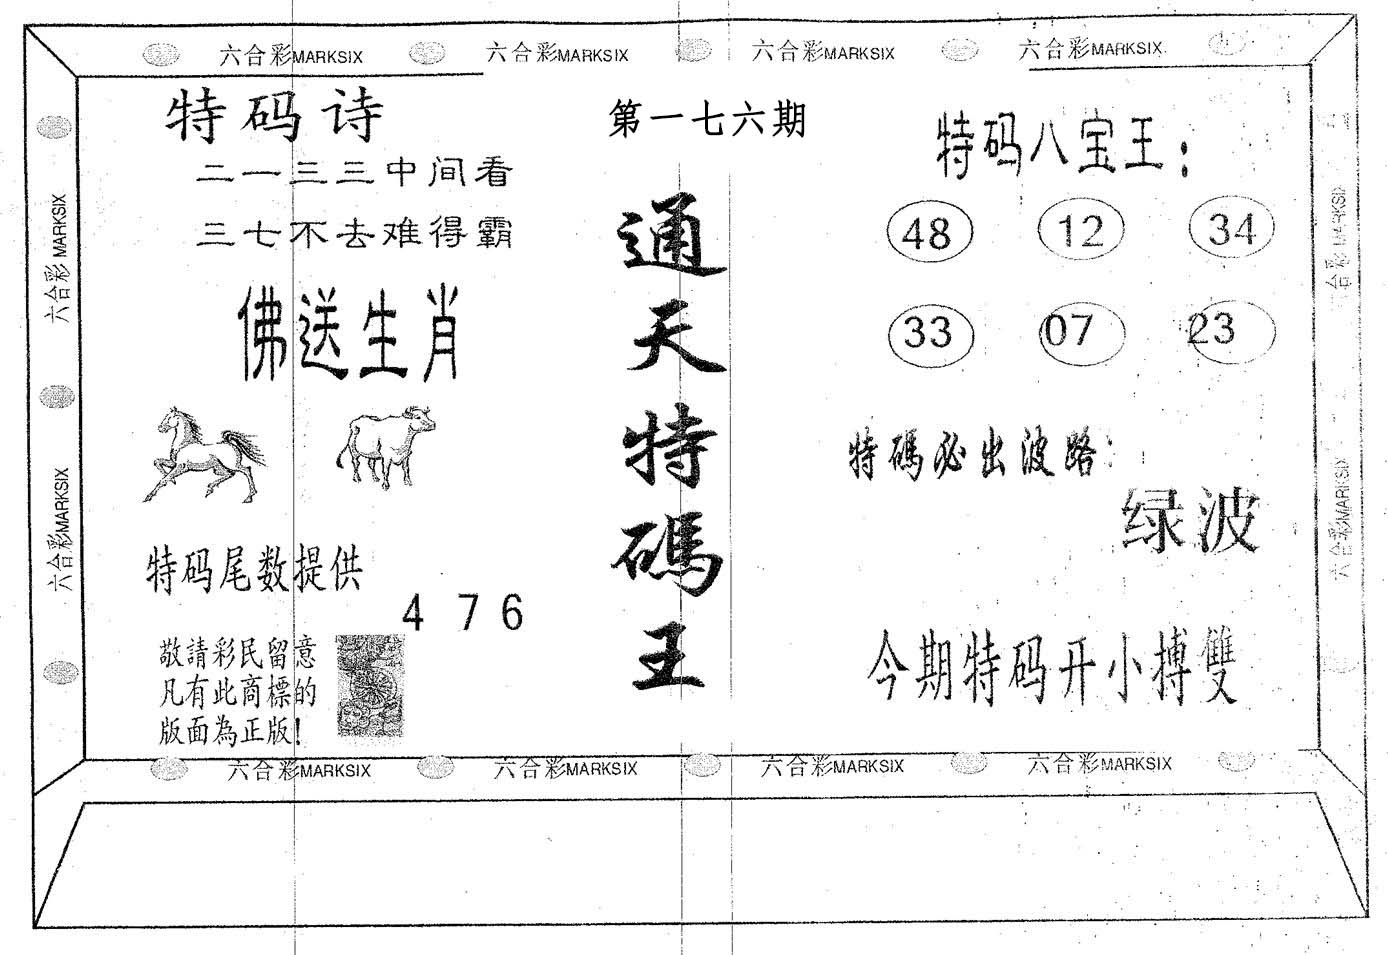 六合彩MARKSIX 六合彩MARKSIX 六合彩MARKSIX 六合彩MARKSIX
六合彩MARKSIX
六合彩MARKSIX
特码诗
二一三三中间看
三七不去难得霸
佛送生肖
特码尾数提供
4 7 6
敬請彩民留意
凡有此商標的
版面為正版!
第一七六期
通天特碼王
特码八宝王:
48 12 34
33 07 23
特碼必出波路:
绿波
今期特码开小搏雙
六合彩MARKSIX
六合彩MARKSIX
六合彩MARKSIX 六合彩MARKSIX 六合彩MARKSIX 六合彩MARKSIX